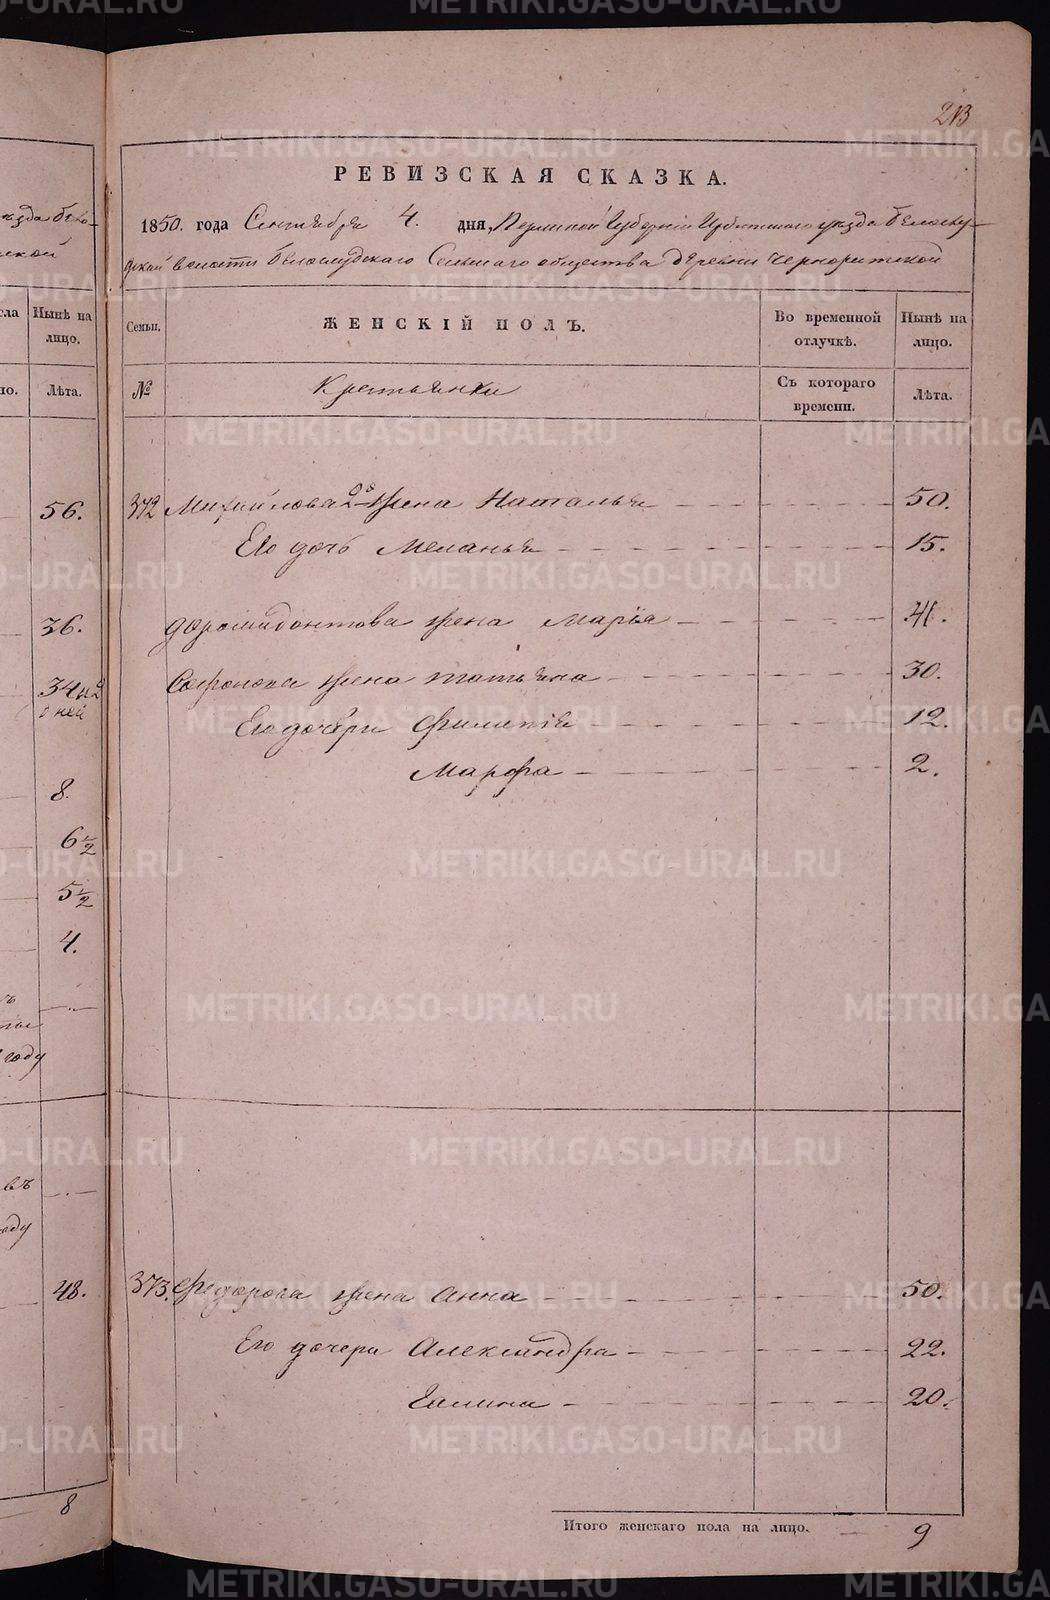 213
РЕВИЗСКАЯ СКАЗКА.
1850. года Сентября 4. дня, Пермской Губерніи Ирбитскаго уезда Белослу-
дской волости Белослудскаго Сельскаго общества деревни Чернорицкой
Семьи.
ЖЕНСКІЙ ПОЛЪ.
Во временной отлучкѣ.
Нынѣ на лицо.
№
Крестьянки
Съ котораго времени.
Лѣта.
372 Михайлова 2я жена Наталья 50.
Его дочь Меланья 15.
Доромидонтова жена Марія 41.
Софонова жена Татьяна 30.
Его дочери 12.
Марфа 2.
373. Федорова жена Анна 50.
Его дочери Александра 22.
Галина 20.
Итого женскаго пола на лицо. 9
уезда бело-
ской
Нынѣ на лицо.
Лѣта.
56.
36.
34 и 2
дней
8.
6 1/2
5 1/2
4.
году
48.
8
METRIKI.GASO-URAL.RU